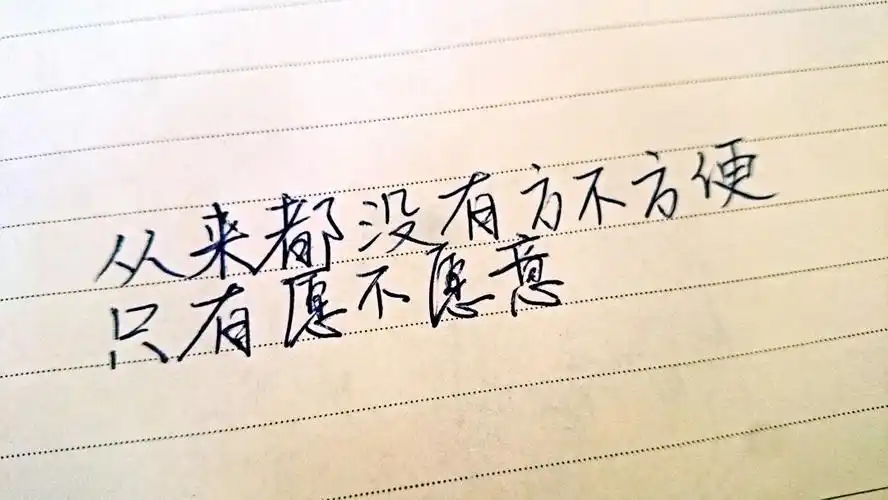 从来都没有方不方便
只有愿不愿意